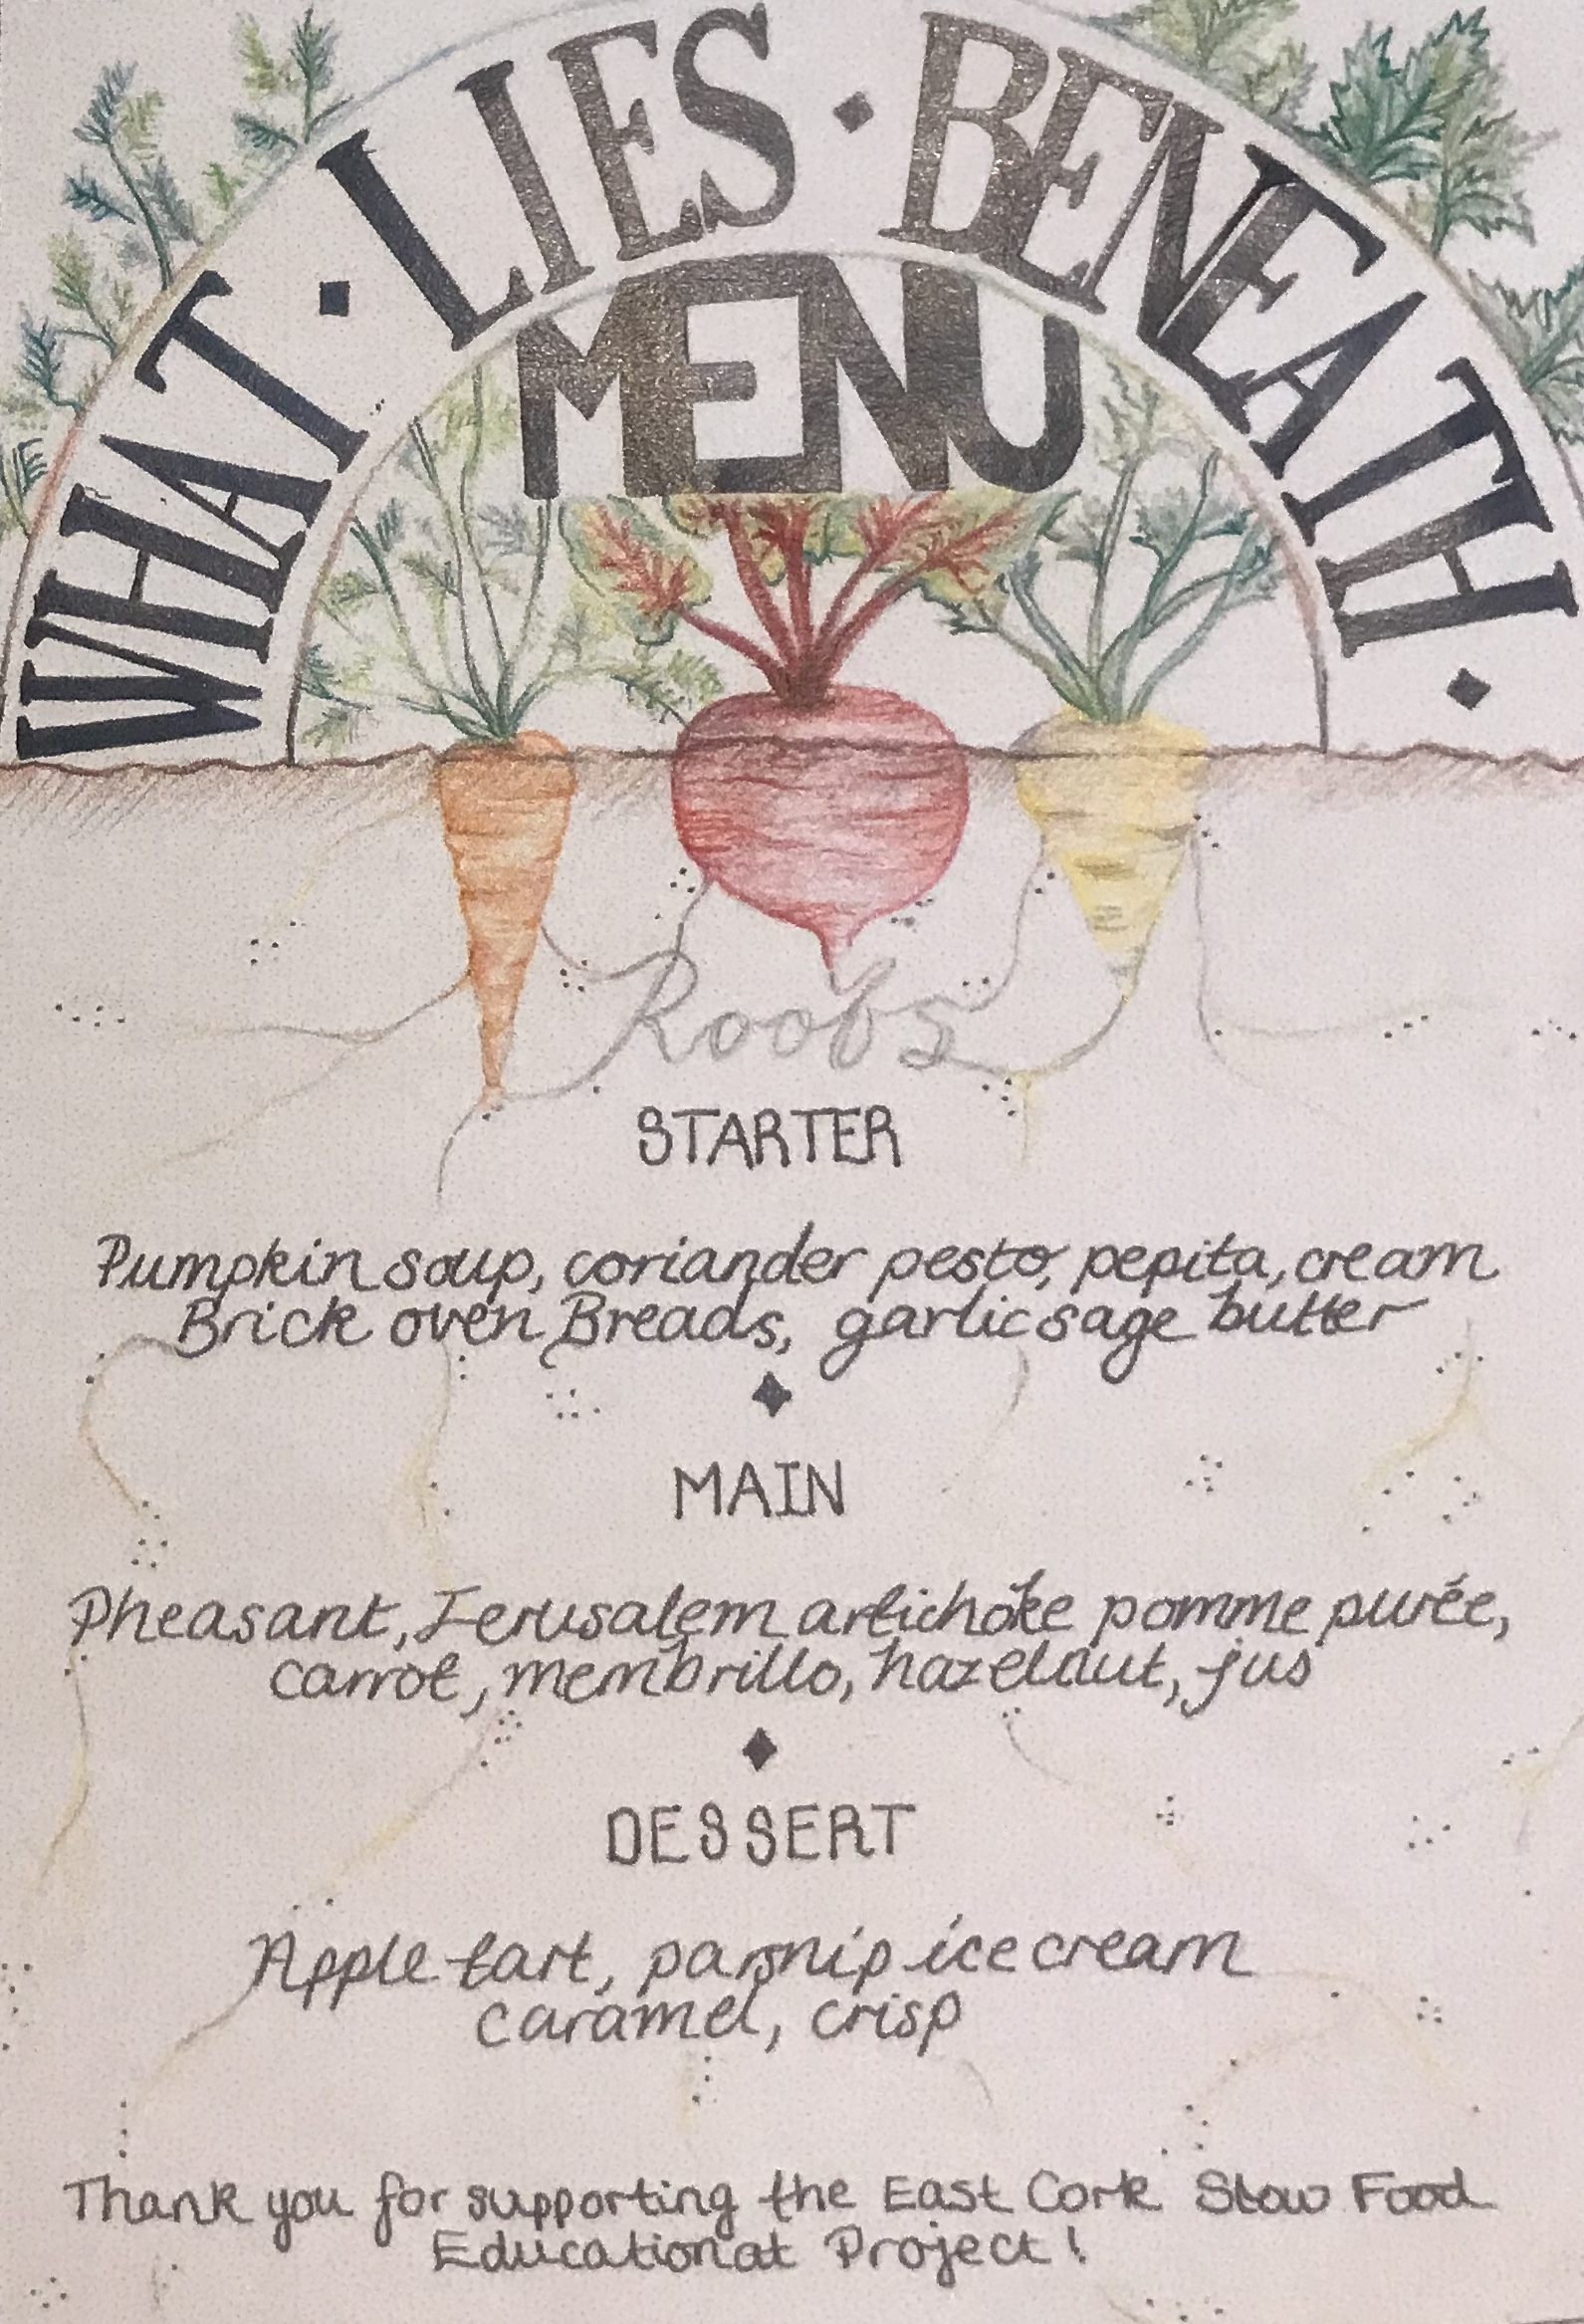 WHAT · LIES · BENEATH ·
MENU
Roots
STARTER
Pumpkin soup, coriander pesto, pepita, cream
Brick oven Breads, garlic sage butter
MAIN
Pheasant, Jerusalem artichoke pomme purée,
carrot, membrillo, hazelnut, jus
DESSERT
Apple tart, parsnip ice cream
caramel, crisp
Thank you for supporting the East Cork Slow Food
Educational Project!